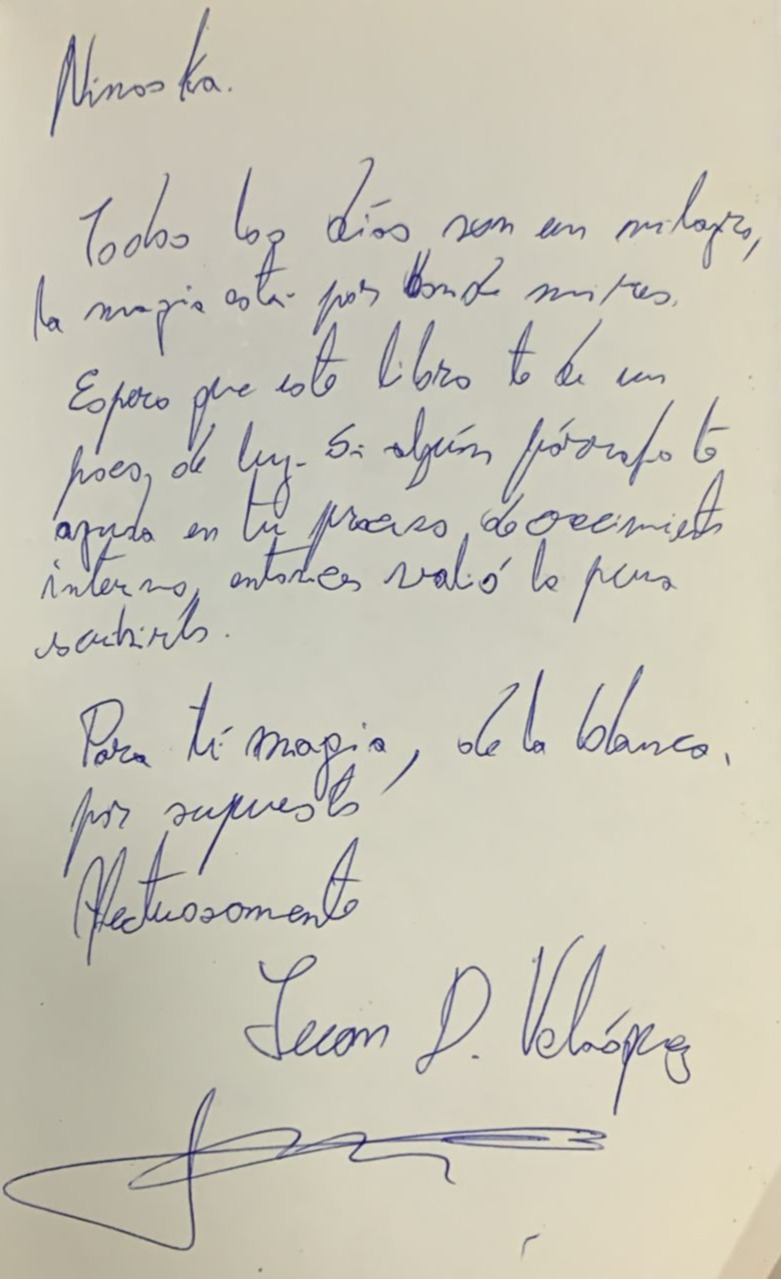 Ninoska.
Todos los días son un milagro,
la magia está por donde mires.
Espero que este libro te de un
poco de luz. Si algún párrafo te
ayuda en tu proceso de crecimiento
interno, entonces valió la pena
escribirlo.
Para ti magia, de la blanca,
por supuesto
Afectuosamente
Juan D. Velázquez